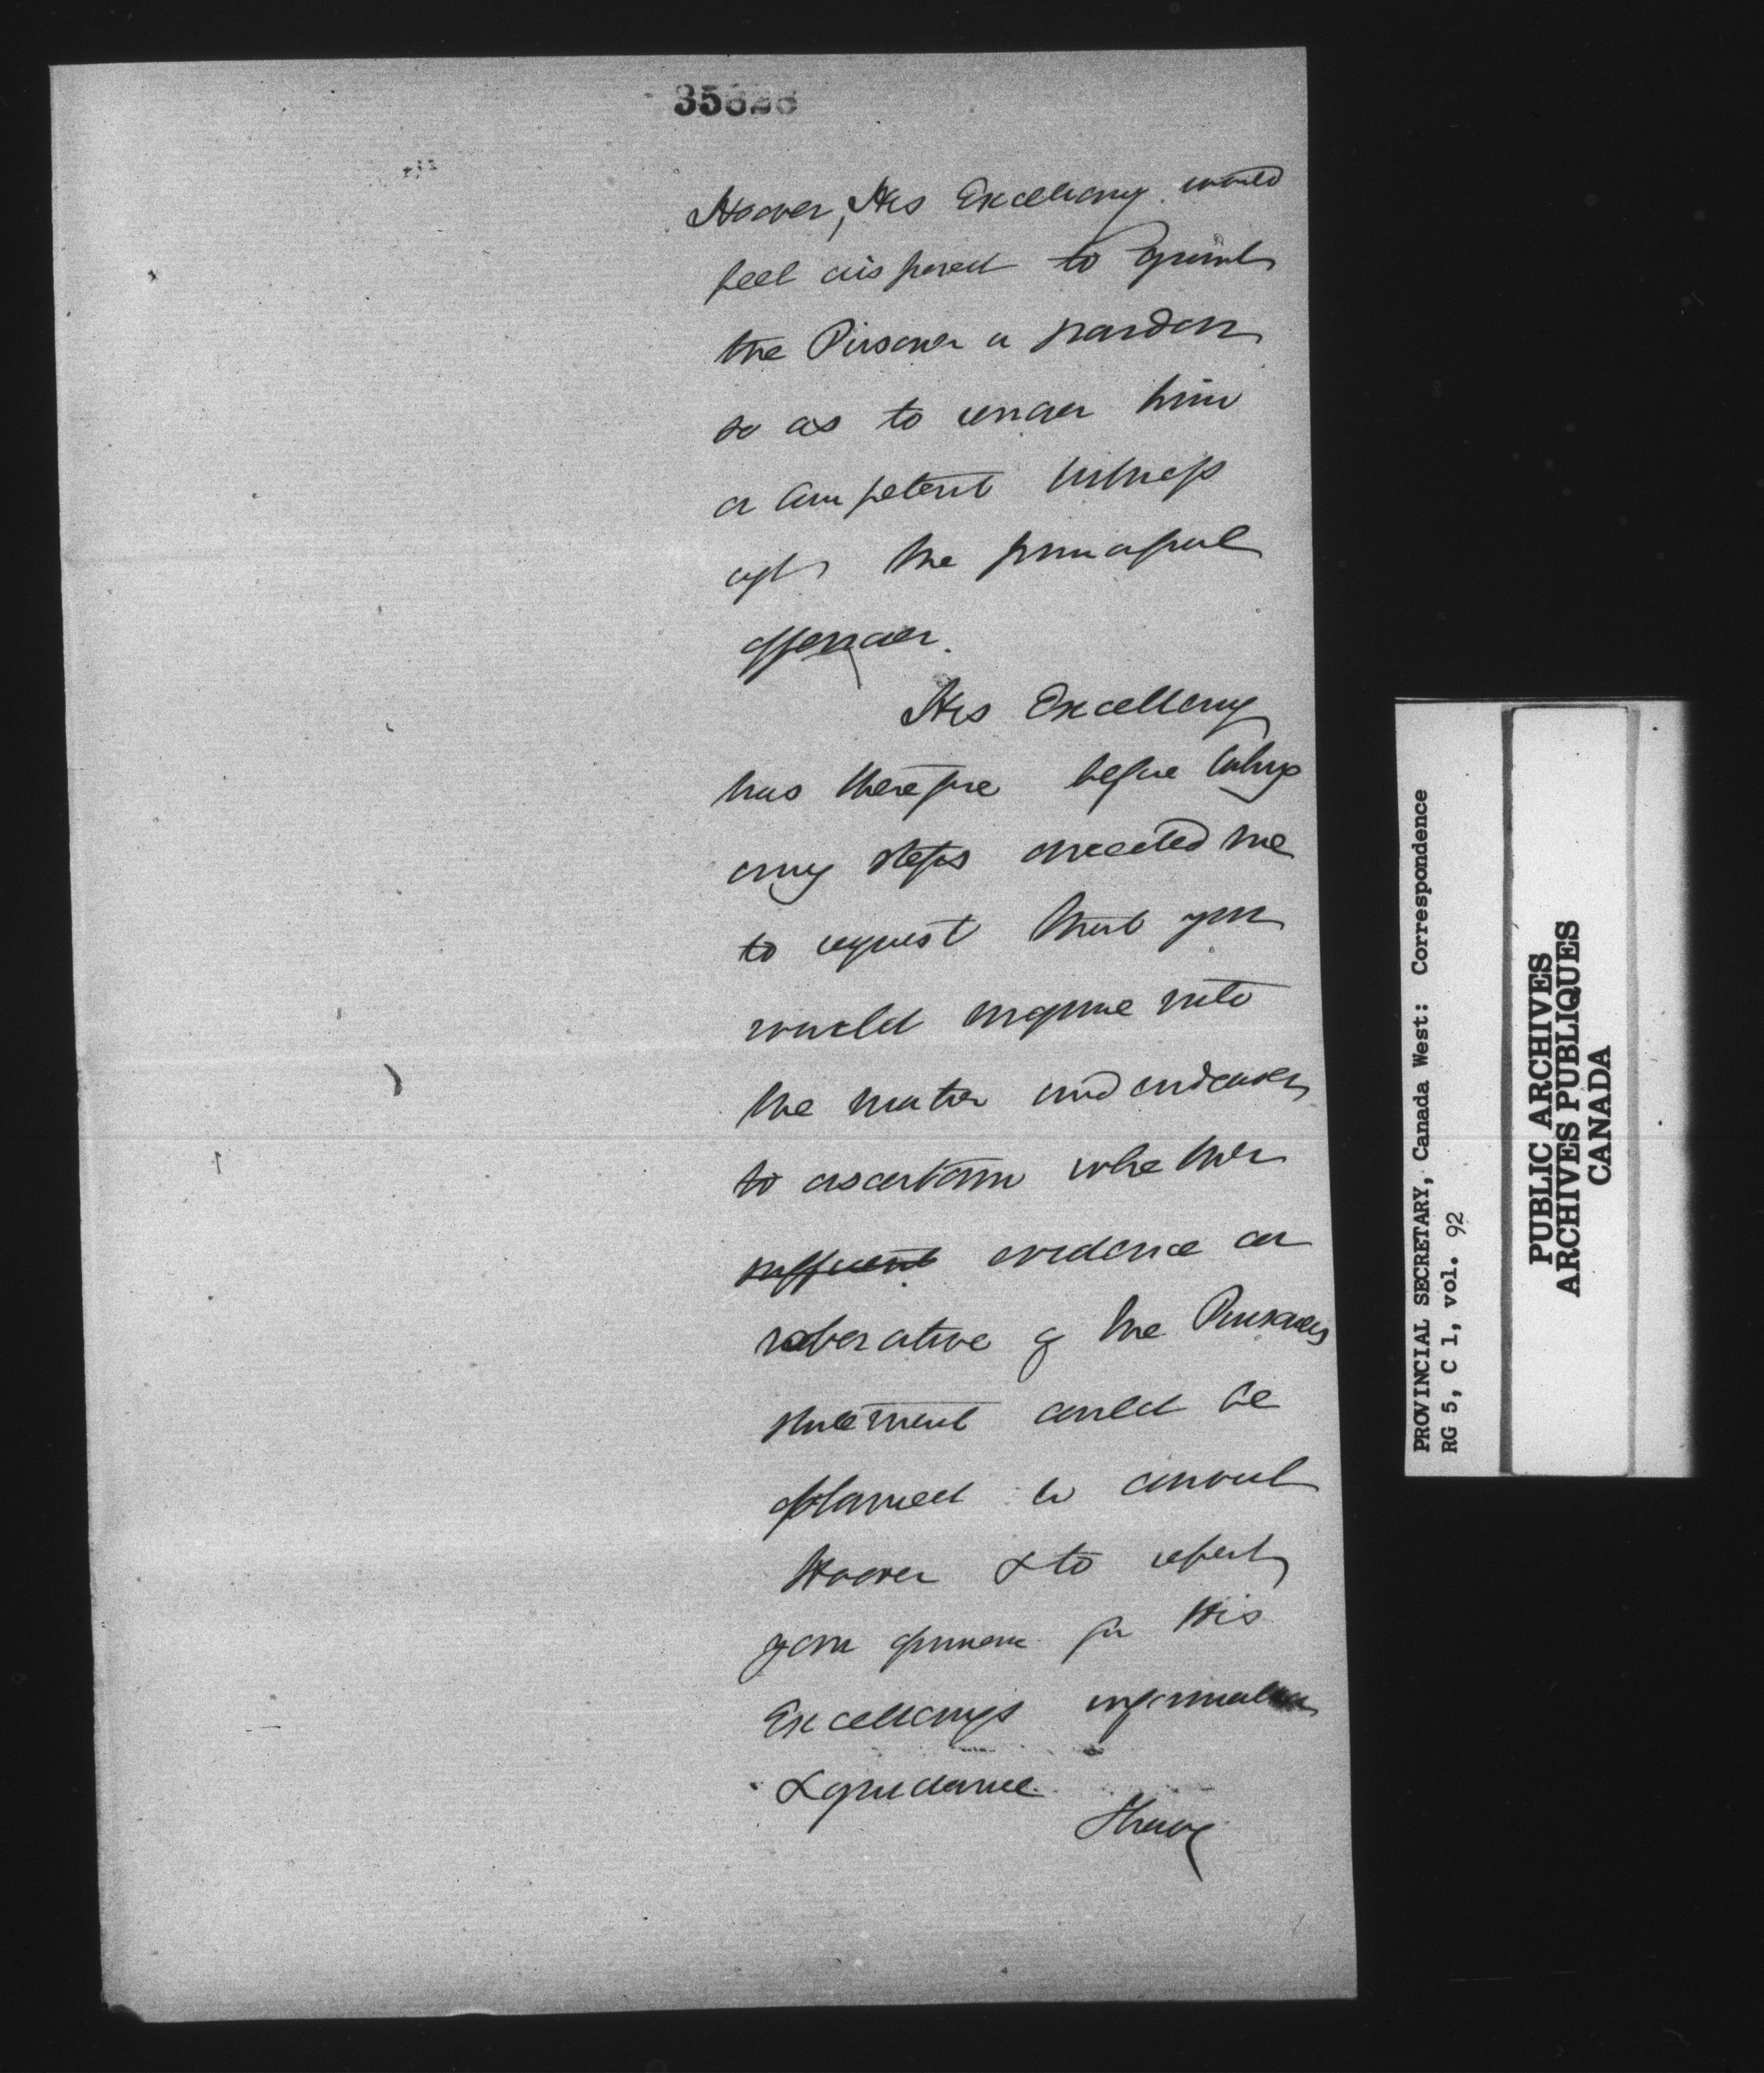 35828
Hoover, His Excellency would
feel disposed to grant
the Prisoner a pardon
so as to render him
a competent witness
agt the principal
offender.
His Excellency
has therefore before taking
any steps directed me
to request that you
would enquire into
the matter and endeavor
to ascertain whether
sufficient evidence cor
roborative of the Prisoners
statement could be
obtained to convict
Hoover & to report
your opinion for His
Excellencys information
& guidance.
PROVINCIAL SECRETARY, Canada West: Correspondence
RG 5, C 1, vol. 92
PUBLIC ARCHIVES
ARCHIVES PUBLIQUES
CANADA